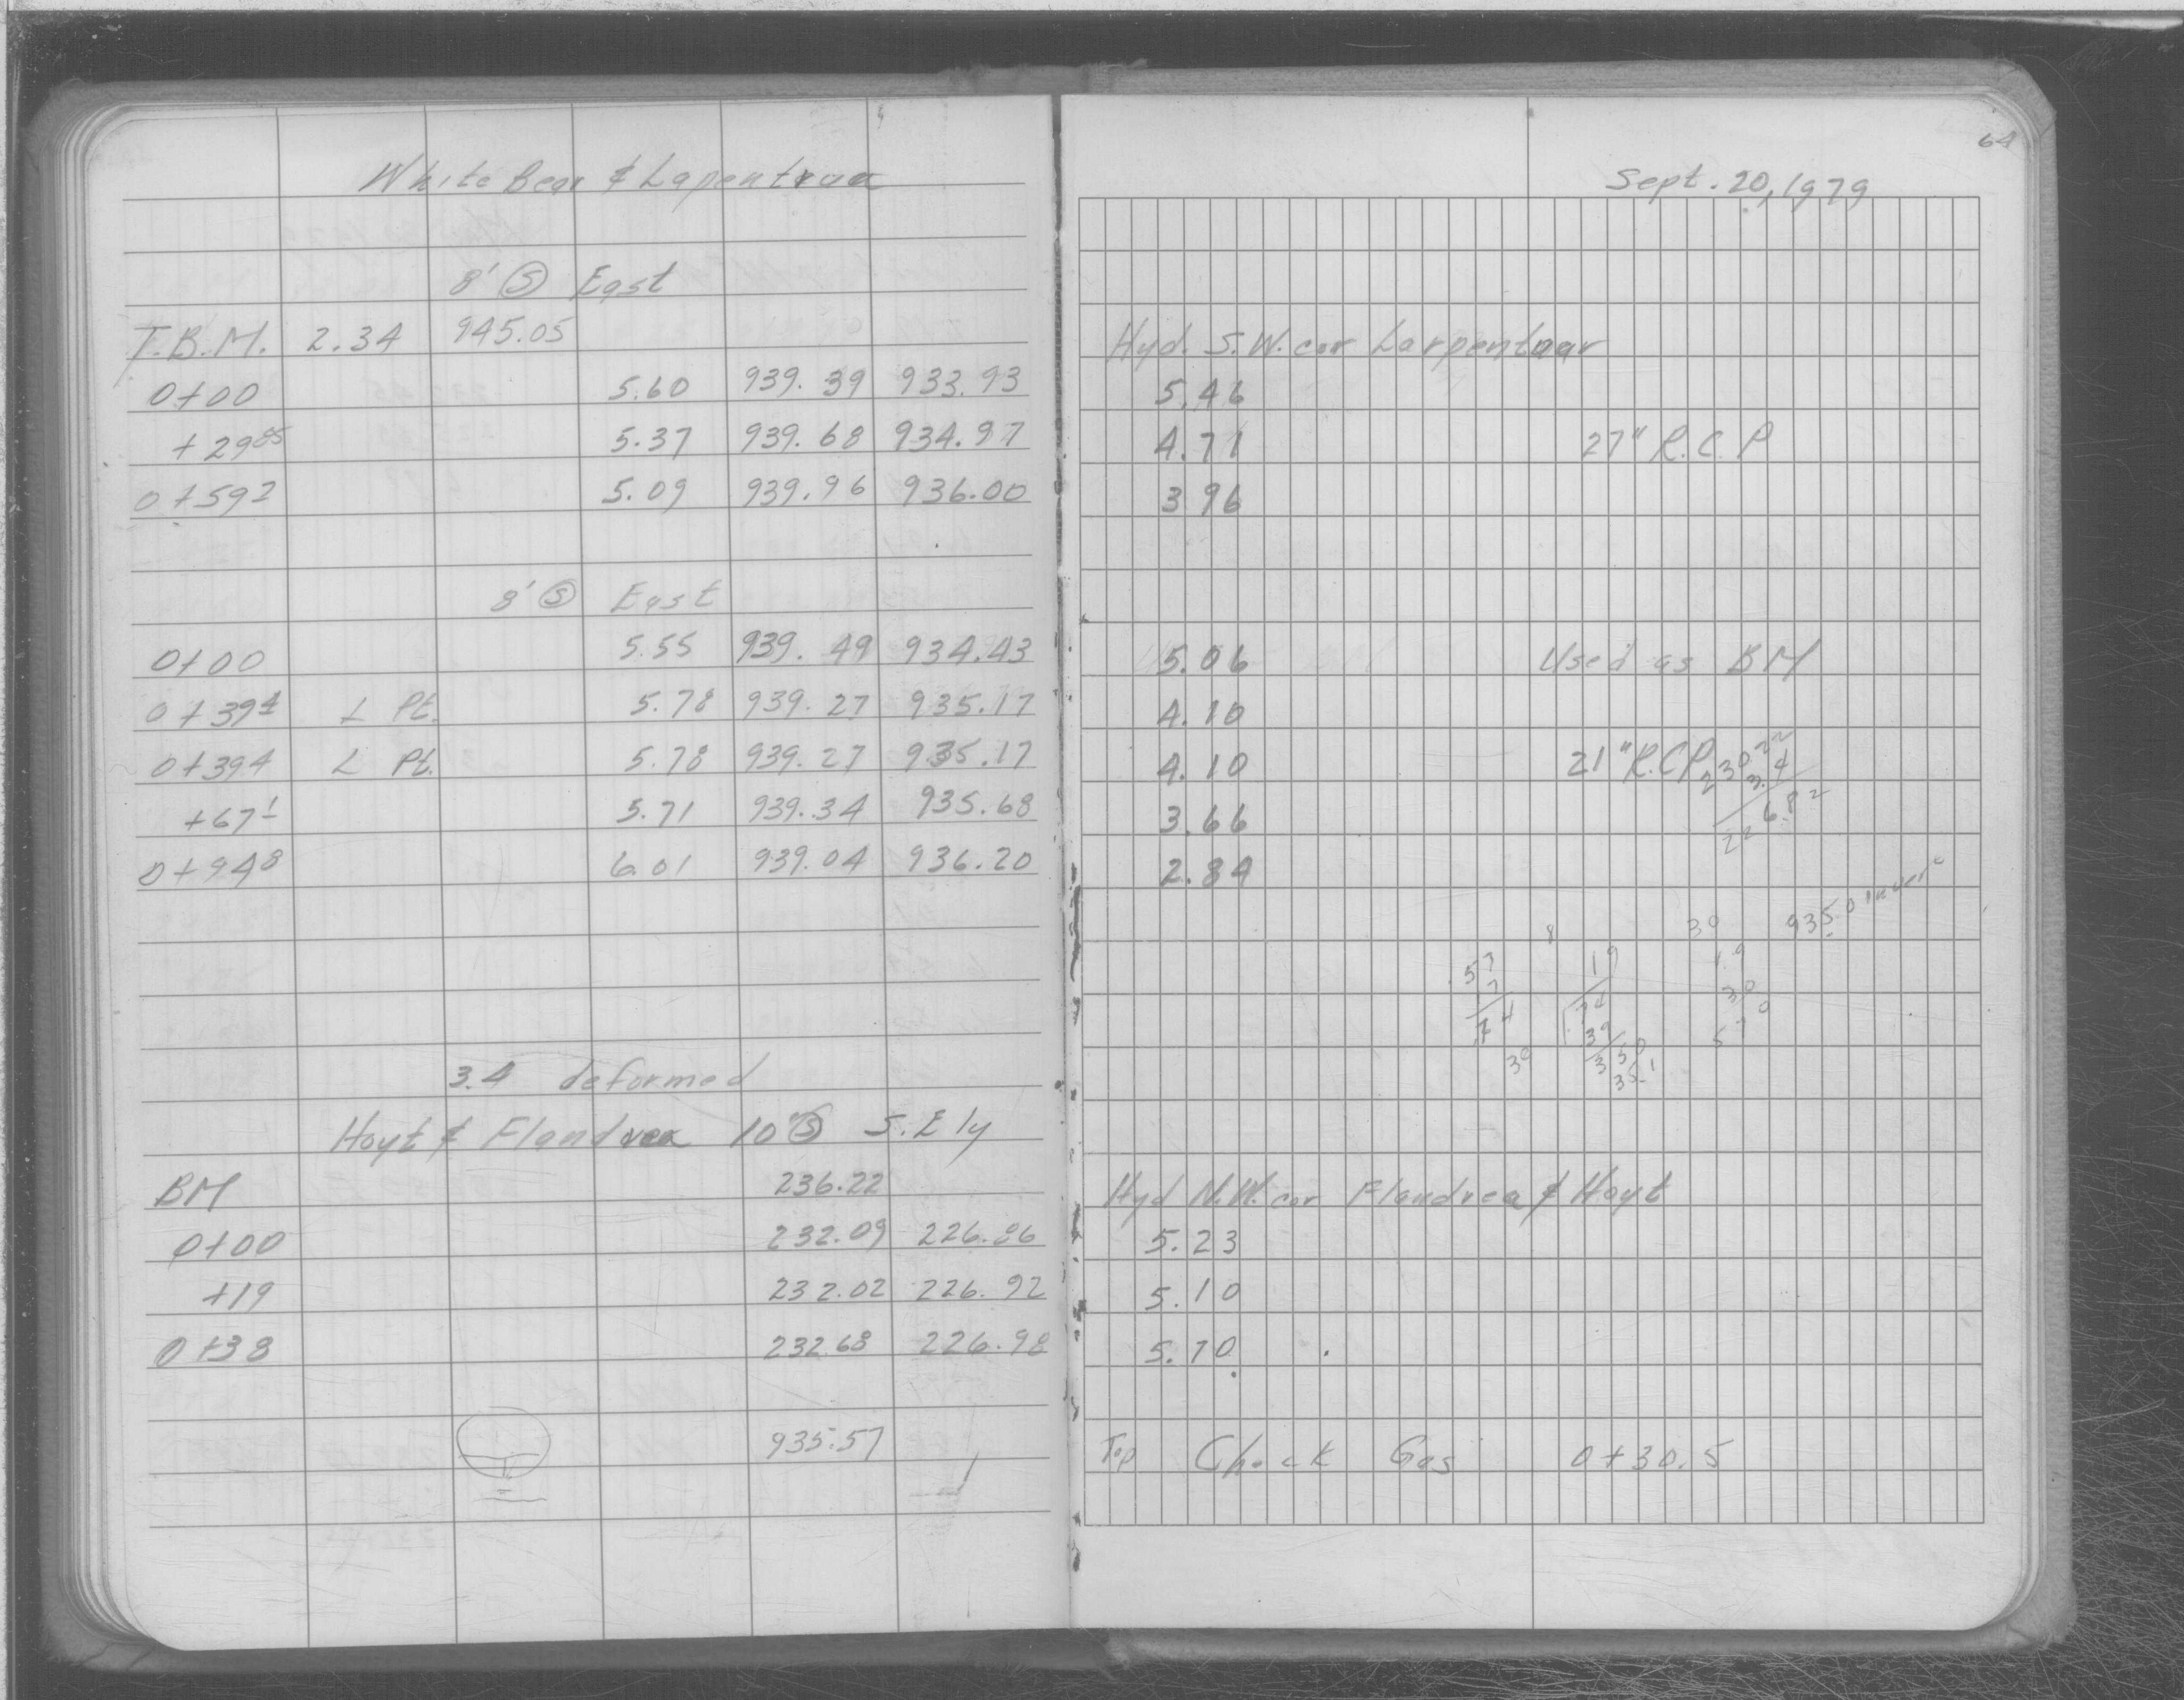 White Bear & Lapentrua
8' Ⓢ East
T.B.M. 2.34 945.05
0+00 5.60 939.39 933.93
+29 85 5.37 939.68 934.97
0+59 7 5.09 939.96 936.00
8' Ⓢ East
0+00 5.55 939.49 934.43
0+39 4 L Pt. 5.78 939.27 935.17
0+39 4 L Pt. 5.78 939.27 935.17
+67 1 5.71 939.34 935.68
0+94 8 6.01 939.04 936.20
3.4 deformed
Hoyt & Flandrea 10' Ⓢ S.Ely
BM 236.22
0+00 232.09 226.86
+19 232.02 226.92
0+38 232.68 226.98
935.57
64
Sept. 20, 1979
Hyd. S.W. cor Larpentaar
5.46
4.71 27" R.C.P
3 96
5.06 Used as BM
4.10
4.10 21" R.C.P
230 22
3.4
3.66
226.82
2.84
30 935.0
8
57 19 1.9
30
39
30 350
35.1
Hyd N.W. cor Flandrea & Hoyt
5.23
5.10
5.70
Top Check Gas 0+30.5